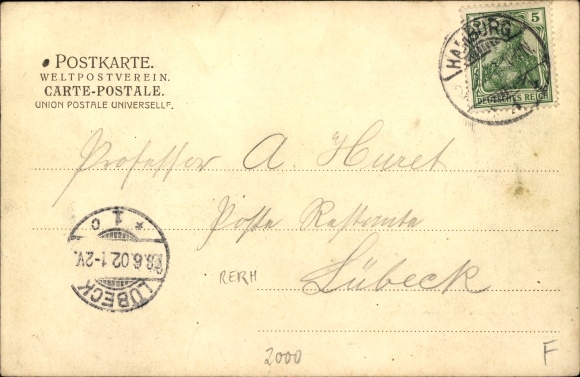 POSTKARTE.
WELTPOSTVEREIN.
CARTE-POSTALE.
UNION POSTALE UNIVERSELLE.
HAMBURG
5
DEUTSCHES REICH
Professor A. Huret
Poste Restante
Lübeck
* 1 c
8.6.02.1-2V.
LÜBECK
RERH
2000
F